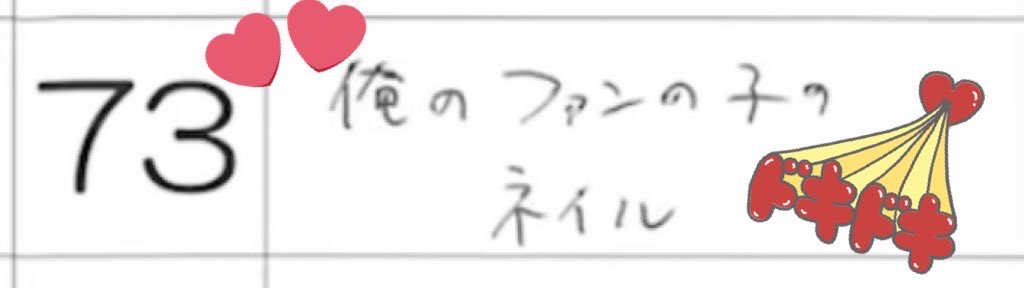 73
俺のファンの子の
ネイル
ドキドキ